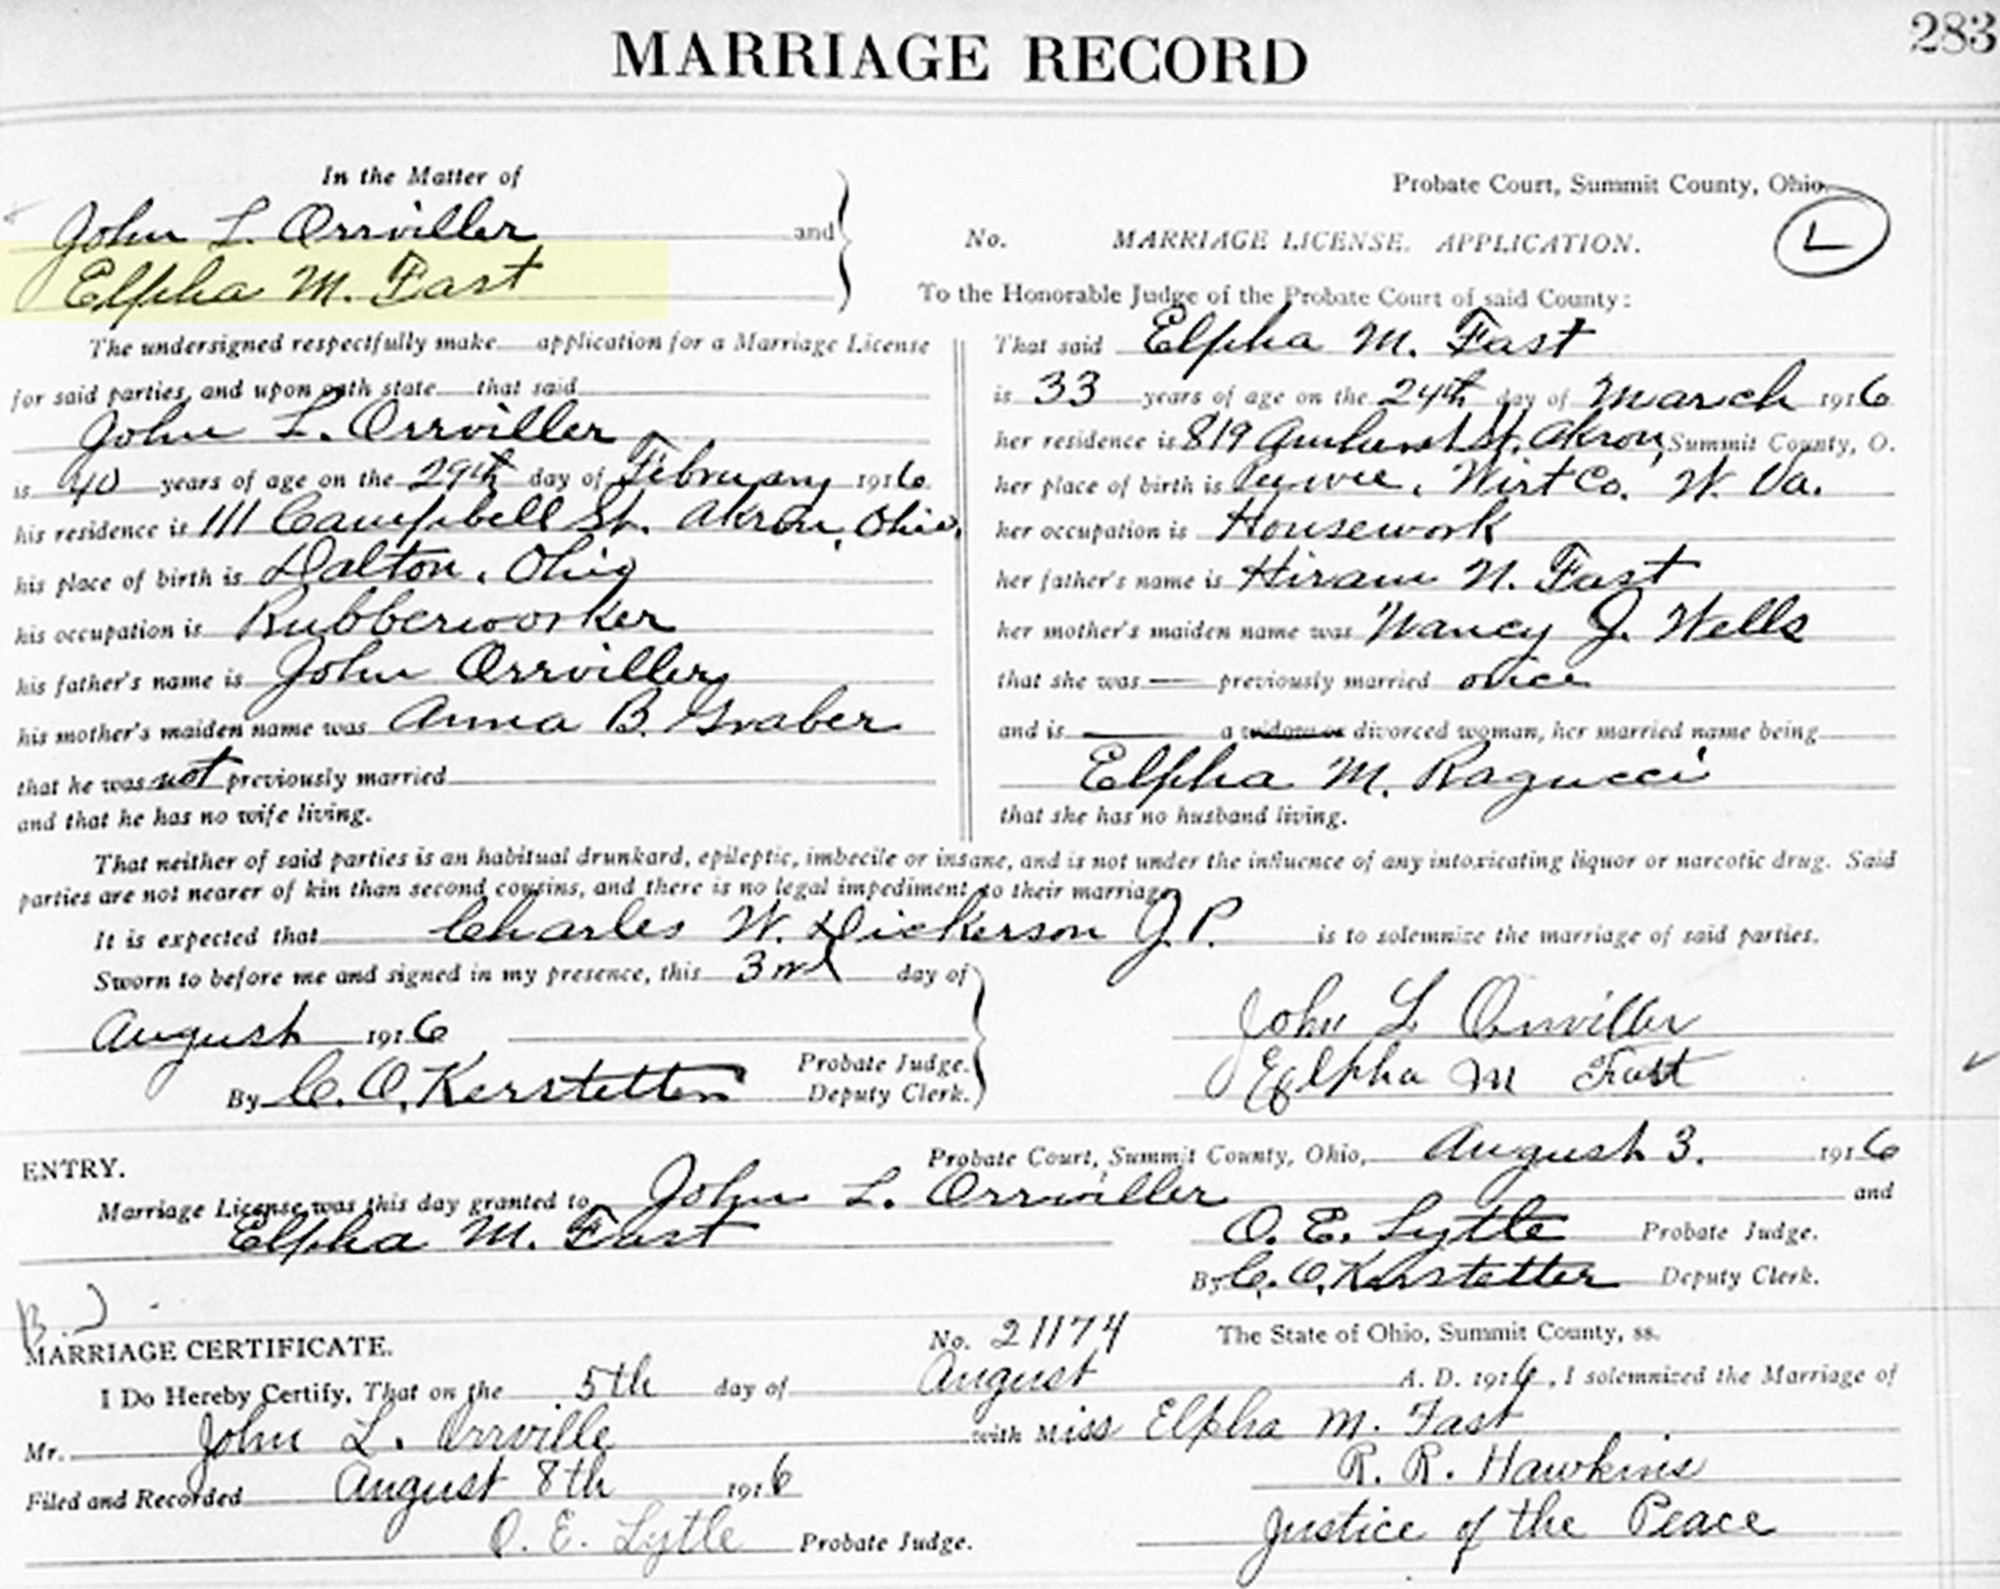 283
MARRIAGE RECORD
In the Matter of
John L. Orrviller and
Elpha M. Fast
Probate Court, Summit County, Ohio.
L
No. MARRIAGE LICENSE. APPLICATION.
To the Honorable Judge of the Probate Court of said County:
The undersigned respectfully make application for a Marriage License
for said parties, and upon oath state that said
John L. Orrviller
is 40 years of age on the 29th day of February 1916
his residence is 111 Campbell St. Akron, Ohio.
his place of birth is Dalton, Ohio
his occupation is Rubberworker
his father's name is John Orrviller
his mother's maiden name was Anna B. Graber
that he was not previously married
and that he has no wife living.
That said Elpha M. Fast
is 33 years of age on the 24th day of March 1916
her residence is 819 Amherst St. Akron, Summit County, O.
her place of birth is Wirt Co. W. Va.
her occupation is Housework
her father's name is Hiram N. Fast
her mother's maiden name was Nancy J. Wells
that she was — previously married once
and is — a widow or divorced woman, her married name being
Elpha M. Ragucci
that she has no husband living.
That neither of said parties is an habitual drunkard, epileptic, imbecile or insane, and is not under the influence of any intoxicating liquor or narcotic drug. Said
parties are not nearer of kin than second cousins, and there is no legal impediment to their marriage.
It is expected that Charles W. Dickerson J.P. is to solemnize the marriage of said parties.
Sworn to before me and signed in my presence, this 3rd day of
August 1916
Probate Judge.
By C. O. Kerstetter Deputy Clerk.
John L Orrviller
Elpha M Fast
ENTRY.
Probate Court, Summit County, Ohio, August 3. 1916
Marriage License was this day granted to John L. Orrviller and
Elpha M. Fast
O. E. Lytle Probate Judge.
By C. O. Kerstetter Deputy Clerk.
B.
MARRIAGE CERTIFICATE. No. 21174 The State of Ohio, Summit County, ss.
I Do Hereby Certify, That on the 5th day of August A. D. 1916, I solemnized the Marriage of
Mr. John L. Orrville with Miss Elpha M. Fast
Filed and Recorded August 8th 1916
R. R. Hawkins
O. E. Lytle Probate Judge.
Justice of the Peace